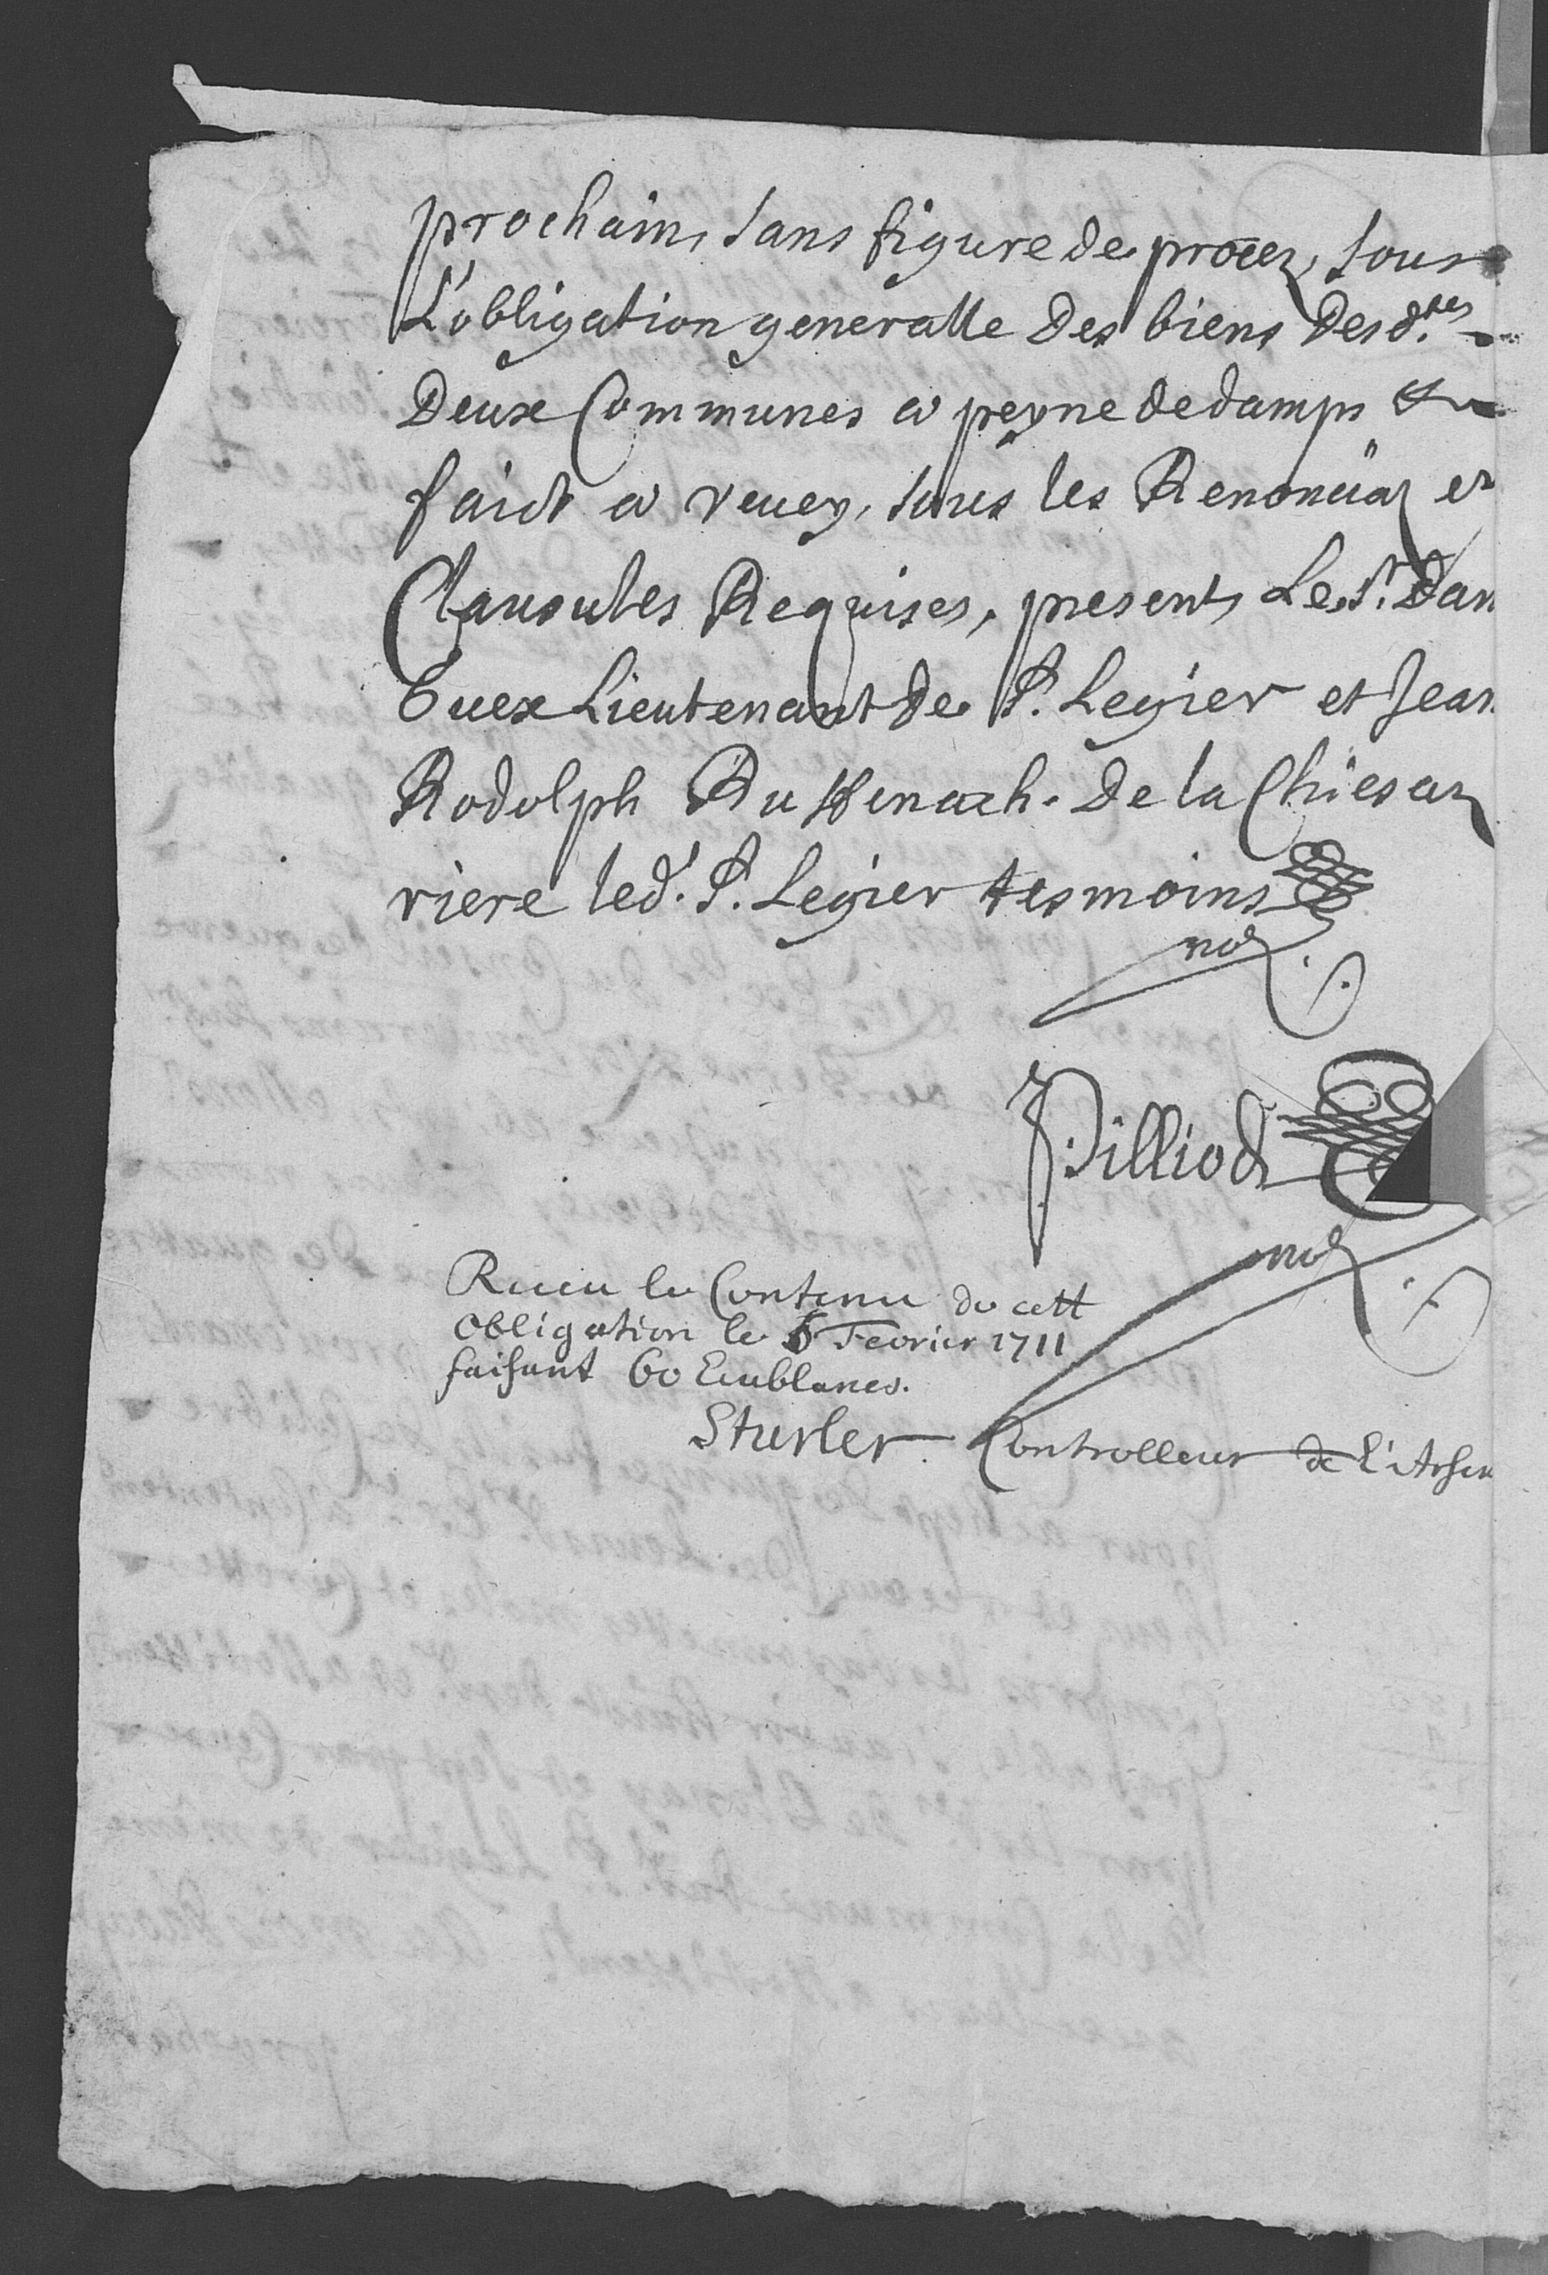 prochain, sans figure de procez, sous
L'obligation generalle des biens desd.tes
Deux Communes a peyne de damps &
faict a vevey, sous les Renonciaõ et
Clausules Requises, presents Le Sr. Dan
Cuex Lieutenant de St. Legier et Jean
Rodolph Russenach. de la Chiesaz
riere led. St. Legier tesmoins
not
Pilliod
not
Receu le Contenu de cett
obligation le 6 Fevrier 1711
faisant 60 Ecublancs.
Sturler. Controlleur de l'Arsen